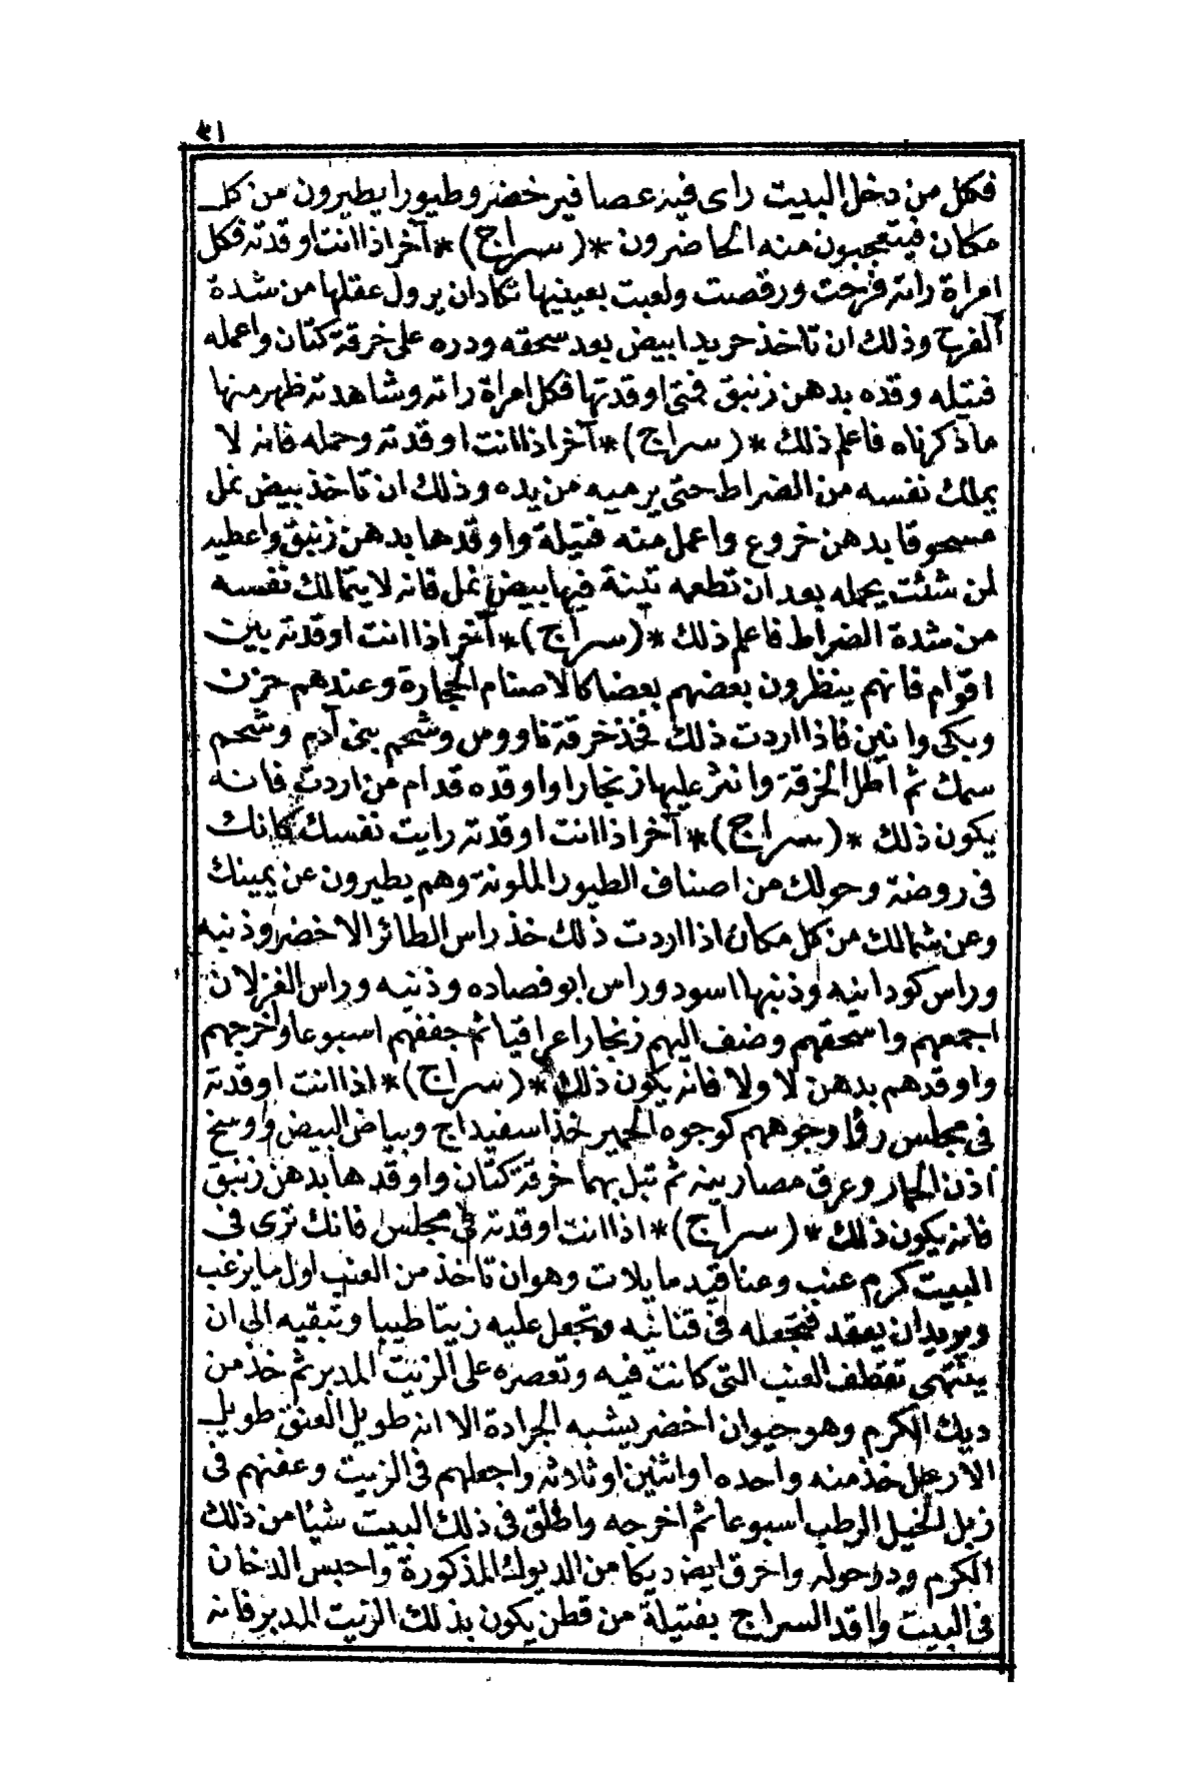 ٣١
فكل من دخل البيت راى فيه عصافير خضر وطيورا يطيرون من كل
مكان فيتعجبون منه الحاضرون *(سراج)* آخر اذا انت اوقدته فكل
امراة راته فرحت ورقصت ولعبت بعينيها تكاد ان يزول عقلها من شدة
الفرح وذلك ان تاخذ حريدا ابيض بعد سحقه ودره على خرقة كتان واعمله
فتيله وقده بدهن زنبق فمتى اوقدتها فكل امراة راته وشاهدته ظهر منها
ما ذكرناه فاعلم ذلك *(سراج)* آخر اذا انت اوقدته وحمله فانه لا
يملك نفسه من الضراط حتى يرميه من يده وذلك ان تاخذ بيض نمل
مسحوقا بدهن خروع واعمل منه فتيلة واوقدها بدهن زنبق واعطيه
لمن شئت يحمله بعد ان تطعمه تينة فيها بيض نمل فانه لا يتمالك نفسه
من شدة الضراط فاعلم ذلك *(سراج)* آخر اذا انت اوقدته بين
اقوام فانهم ينظرون بعضهم بعضا كالاصنام الحجارة وعندهم حزن
وبكى وانين فاذا اردت ذلك فخذ خرقة ناووس وشحم بنى آدم وشحم
سمك ثم اطل الخرقة وانثر عليها زنجارا واوقده قدام من اردت فانه
يكون ذلك *(سراج)* آخر اذا انت اوقدته رايت نفسك كانك
فى روضة وحولك من اصناف الطيور الملونة وهم يطيرون عن يمينك
وعن شمالك من كل مكان اذا اردت ذلك خذ راس الطائر الاخضر وذنبه
وراس كودانيه وذنبها اسود وراس ابو فصاده وذنبه وراس الغزلان
اجمعهم واسحقهم وضف اليهم زنجارا عراقيا ثم جففهم اسبوعا واخرجهم
واوقدهم بدهن لا ولا فانه يكون ذلك *(سراج)* اذا انت اوقدته
فى مجلس رؤا وجوههم كوجوه الحمير خذ اسفيداج وبياض البيض ووسخ
اذن الحمار وعرق مصارينه ثم تبل بهما خرقة كتان واوقدها بدهن زنبق
فانه يكون ذلك *(سراج)* اذا انت اوقدته فى مجلس فانك ترى فى
البيت كرم عنب وعناقيد مايلات وهو ان تاخذ من العنب اول ما يزغب
ويريد ان يعقد فتجعله فى قنانيه وتجعل عليه زيتا طيبا وتبقيه الى ان
ينتهى تقطف العنب التى كانت فيه وتعصره على الزيت المدبر ثم خذ من
ديك الكرم وهو حيوان اخضر يشبه الجرادة الا انه طويل العنق طويل
الارجل خذ منه واحده او اثنين او ثلاثه واجعلهم فى الزيت وعفنهم فى
زبل الخيل الرطب اسبوعا ثم اخرجه واطلق فى ذلك البيت شيئا من ذلك
الكرم ودر حوله واخرق ايضه ديكا من الديوك المذكورة واحبس الدخان
فى البيت واقد السراج بفتيلة من قطن يكون بذلك الزيت المدبر فانه